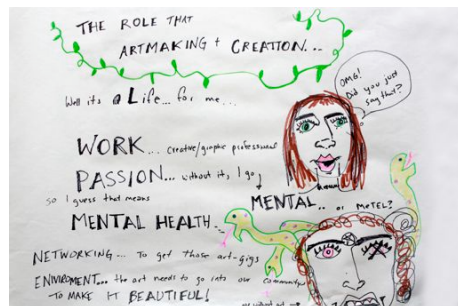 THE ROLE THAT
ARTMAKING + CREATION...
Well its a Life... for me...
OMG!
Did you just
say that?
WORK... Creative/graphic professional
PASSION... without its, I go
MENTAL.. or METEL?
so I guess that means
MENTAL HEALTH.
NETWORKING... To get those art-gigs
ENVIROMENT... the art needs to go into our community
TO MAKE IT BEAUTIFUL!
or without art